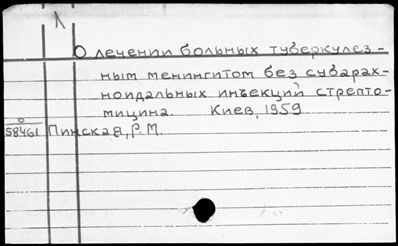 1
О лечении больных туберкулез-
ным менингитом без субарах-
ноидальных инъекций стрепто-
мицина. Киев, 1959
0
58461 Пинская, Р.М.